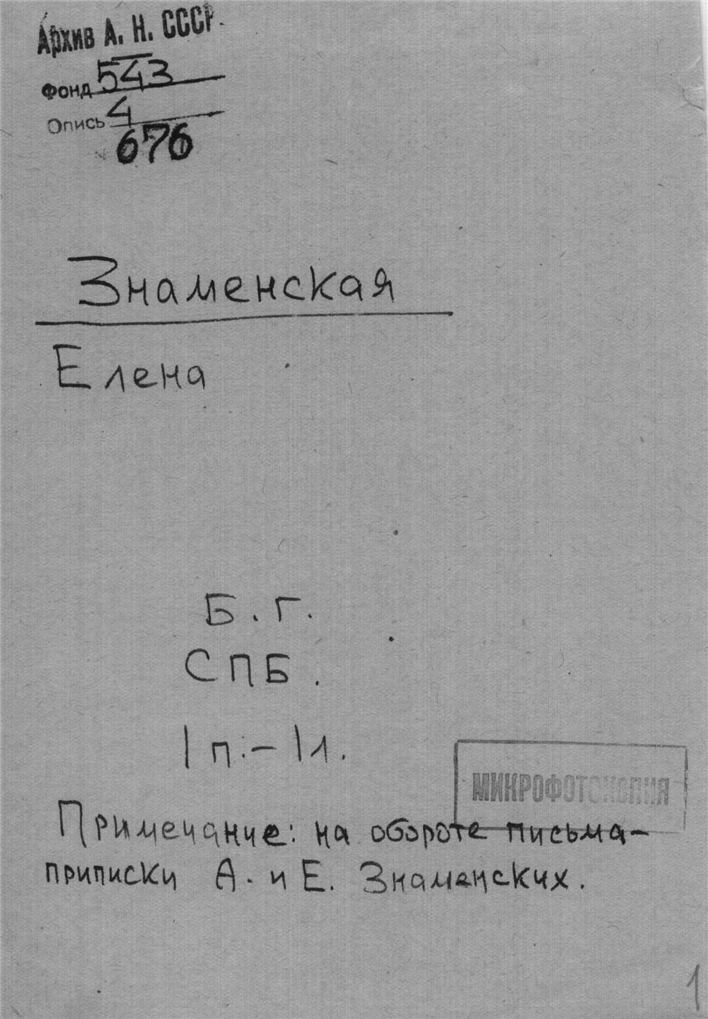 Архив А. Н. СССР.
Фонд 543
Опись 4
№ 676
Знаменская
Елена
Б. Г.
СПБ.
1 п. – 1 л.
МИКРОФОТОКОПИЯ
Примечание: на обороте письма –
приписки А. и Е. Знаменских.
1